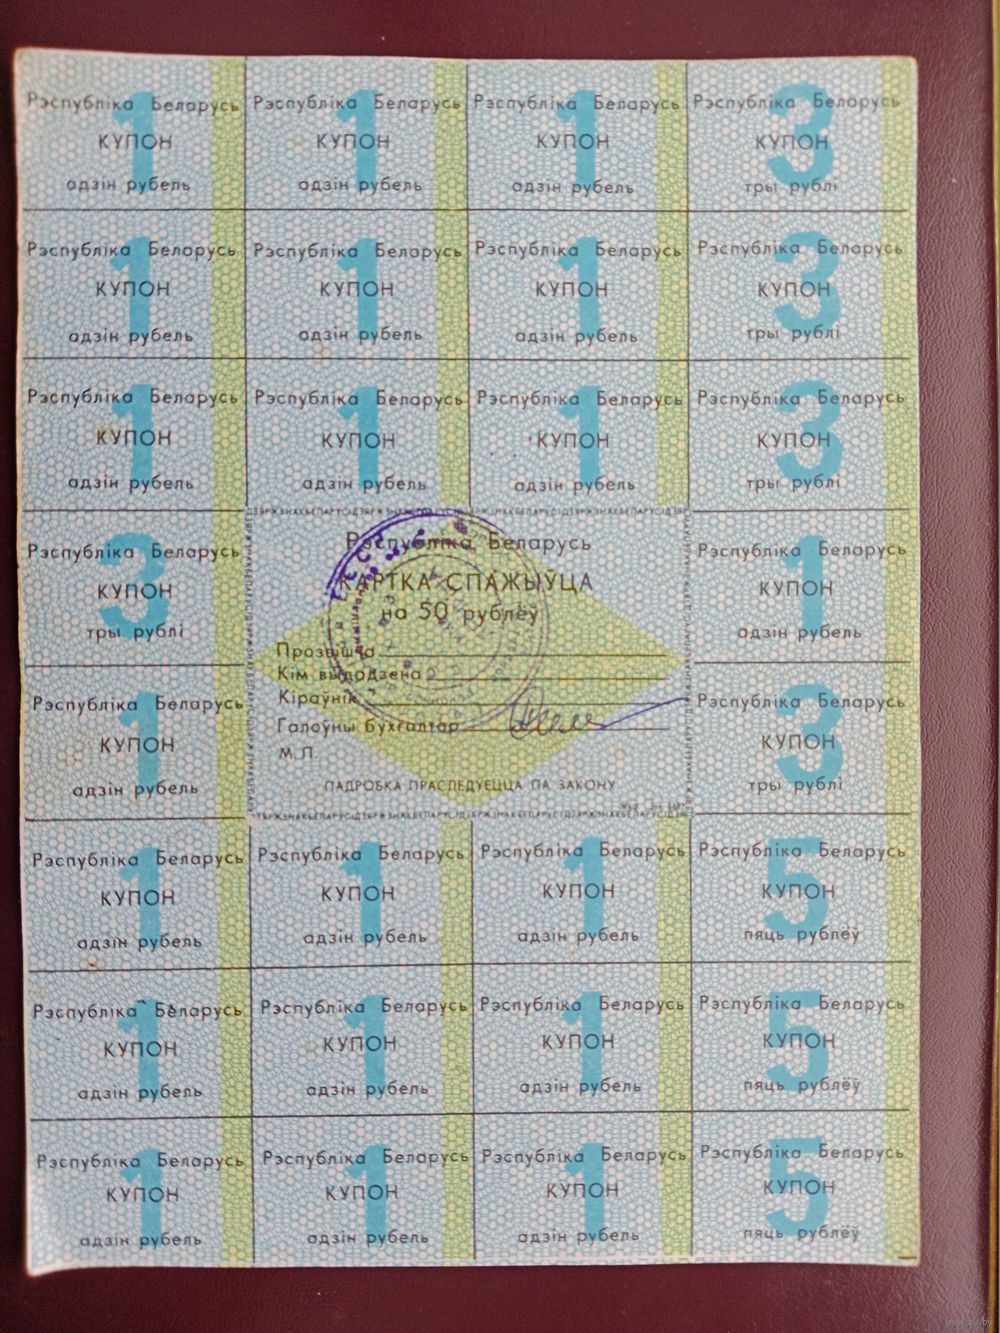 Рэспубліка Беларусь Рэспубліка Беларусь Рэспубліка Беларусь Рэспубліка Беларусь
1 1 1 3
КУПОН КУПОН КУПОН КУПОН
адзін рубель адзін рубель адзін рубель тры рублі
Рэспубліка Беларусь Рэспубліка Беларусь Рэспубліка Беларусь Рэспубліка Беларусь
1 1 1 3
КУПОН КУПОН КУПОН КУПОН
адзін рубель адзін рубель адзін рубель тры рублі
Рэспубліка Беларусь Рэспубліка Беларусь Рэспубліка Беларусь Рэспубліка Беларусь
1 1 1 3
КУПОН КУПОН КУПОН КУПОН
адзін рубель адзін рубель адзін рубель тры рублі
Рэспубліка Беларусь
3
КУПОН
тры рублі
Рэспубліка Беларусь
КАРТКА СПАЖЫЎЦА
на 50 рублёў
Прозвішча
Кім выдадзена
Кіраўнік
Галоўны бухгалтар
М.П.
ПАДРОБКА ПРАСЛЕДУЕЦЦА ПА ЗАКОНУ
Рэспубліка Беларусь
1
КУПОН
адзін рубель
Рэспубліка Беларусь Рэспубліка Беларусь
1 3
КУПОН КУПОН
адзін рубель тры рублі
Рэспубліка Беларусь Рэспубліка Беларусь Рэспубліка Беларусь Рэспубліка Беларусь
1 1 1 5
КУПОН КУПОН КУПОН КУПОН
адзін рубель адзін рубель адзін рубель пяць рублёў
Рэспубліка Беларусь Рэспубліка Беларусь Рэспубліка Беларусь Рэспубліка Беларусь
1 1 1 5
КУПОН КУПОН КУПОН КУПОН
адзін рубель адзін рубель адзін рубель пяць рублёў
Рэспубліка Беларусь Рэспубліка Беларусь Рэспубліка Беларусь Рэспубліка Беларусь
1 1 1 5
КУПОН КУПОН КУПОН КУПОН
адзін рубель адзін рубель адзін рубель пяць рублёў